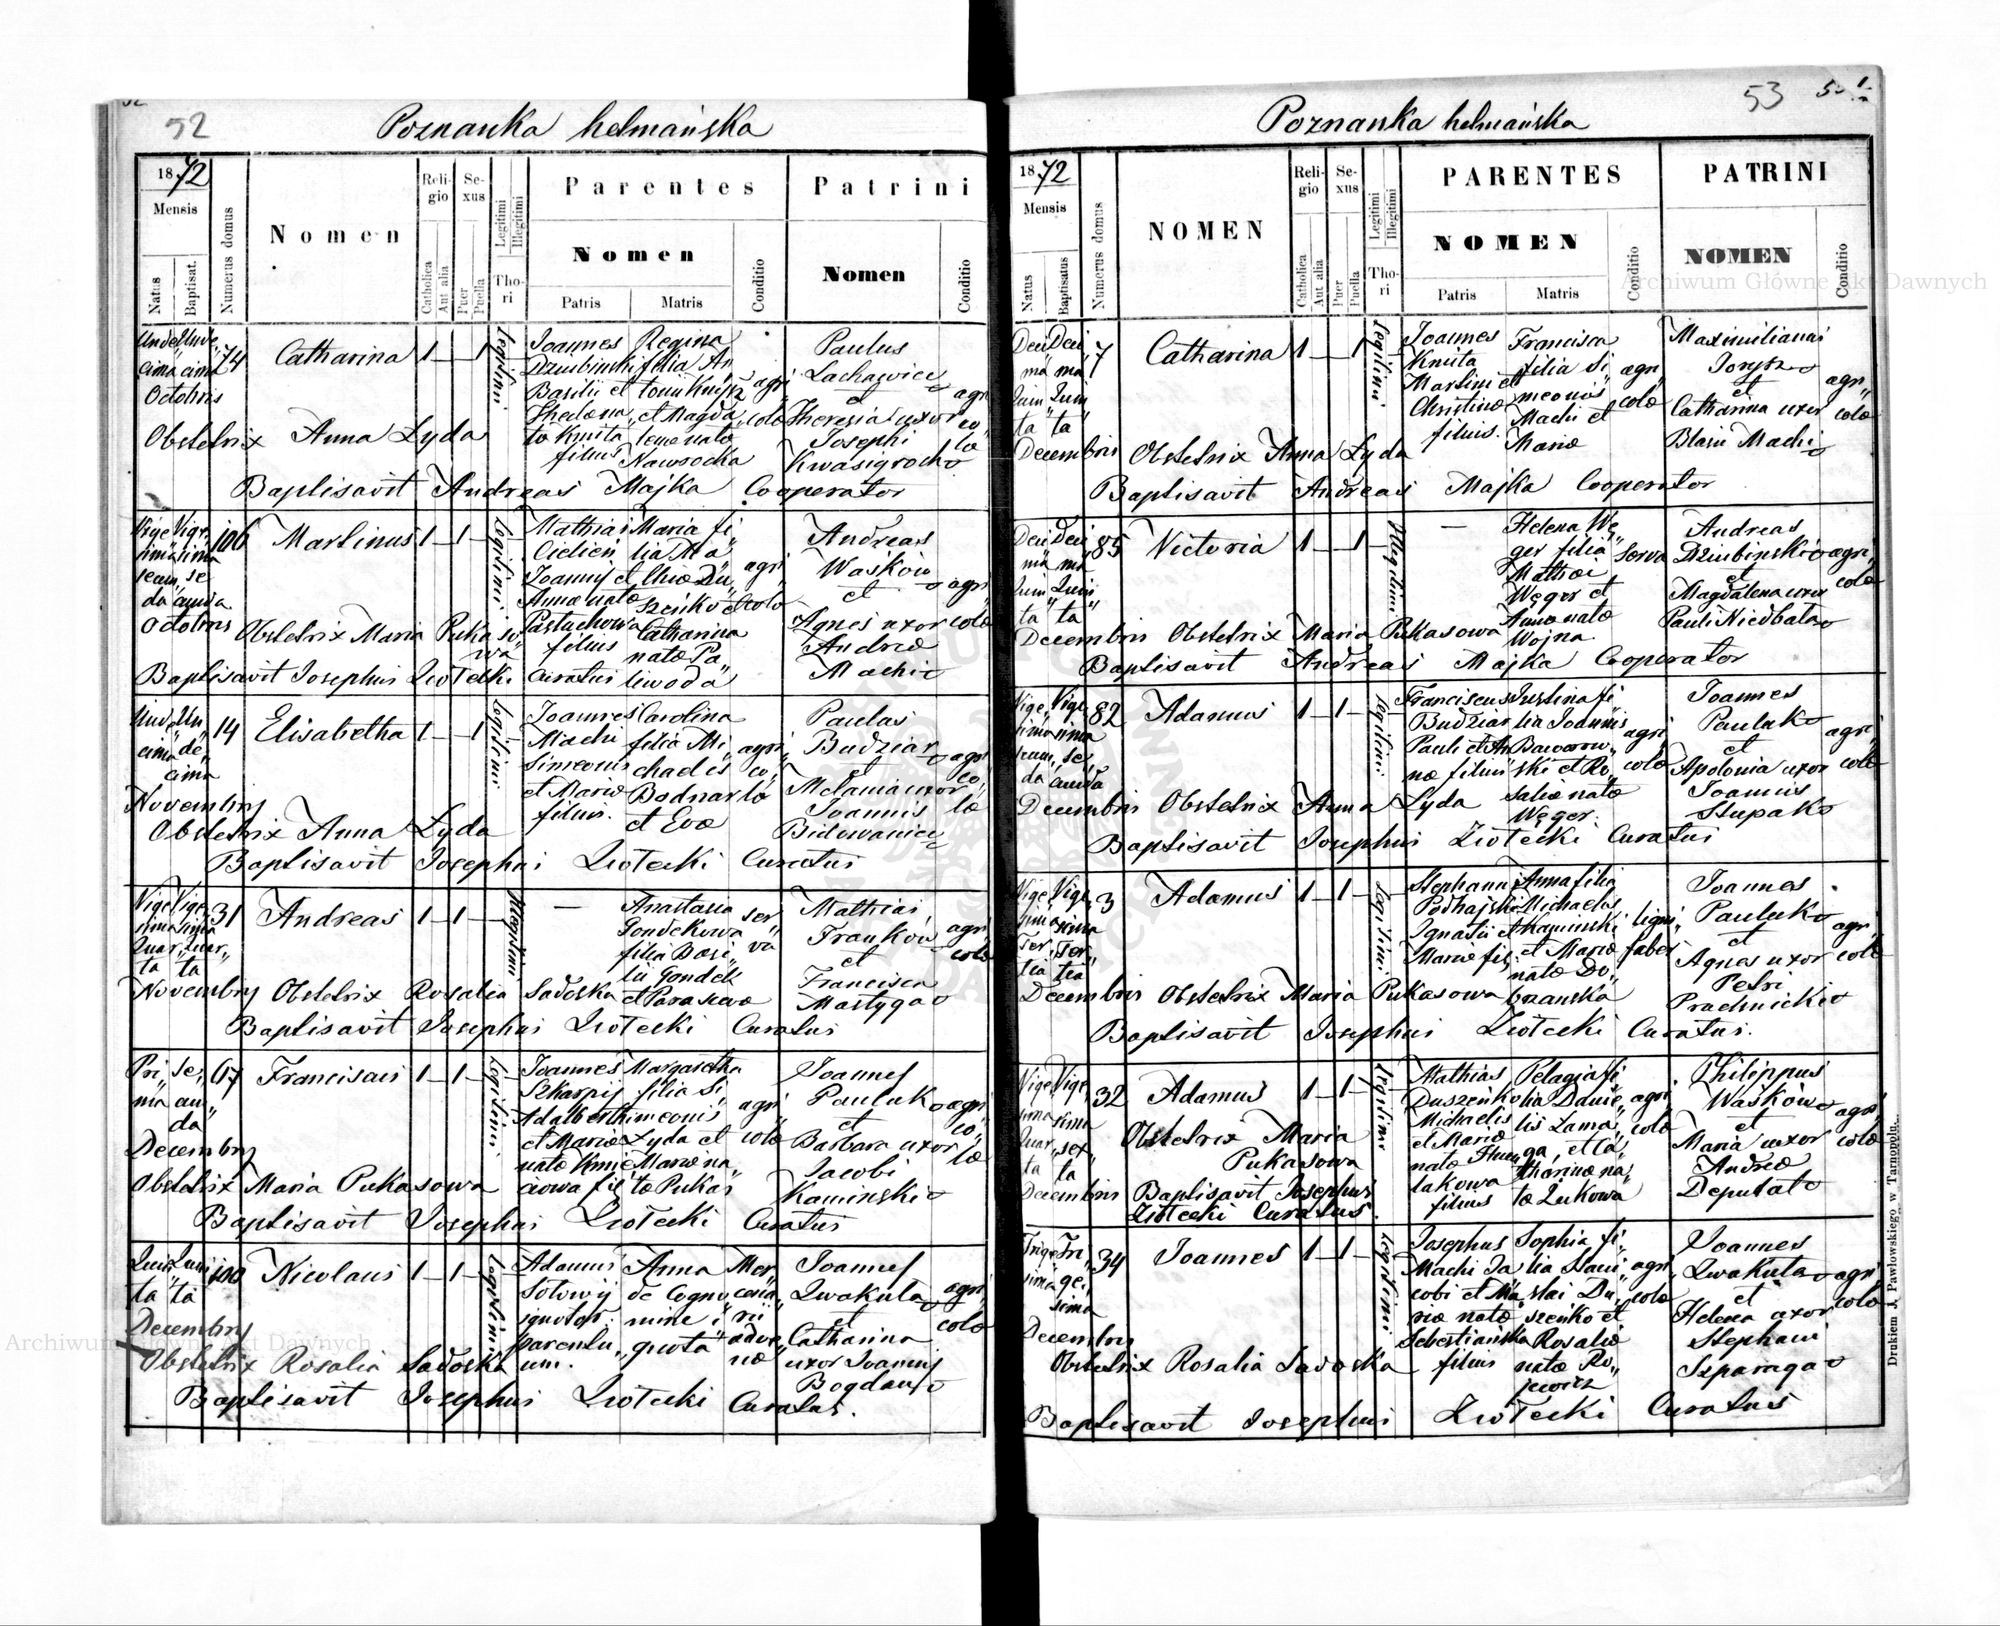 52
Poznanka hetmańska
1872
Mensis
Natus
Baptisat.
Numerus domus
Nomen
Religio
Catholica
Aut alia
Sexus
Puer
Puella
Legitimi
Illegitimi
Thori
Parentes
Nomen
Patris
Matris
Conditio
Patrini
Nomen
Conditio
Octobris
74
Catharina
1 — 1
Legitimi
Joannes
Basilii et
filius
Regina
filia An
et Magda
lenæ natæ
agri
colæ
Paulus
et
Theresia uxor
Josephi
agri
co
læ
Obstetrix Anna Lyda
Baptisavit Andreas Majka Cooperator
Vige Vige
sima sima
secun se
da cunda
Octobris
106
Martinus
1 — 1 —
Legitimi
Mathias
Joannis et
Annæ natæ
Pastuchowa
filius
Maria fi
lia Ma
Catharinæ
natæ Pa
liwoda
agri
colæ
Andreas
Waśków
et
Agnes uxor
Andreæ
Machi
agri
colæ
Obstetrix Maria Pukaso
wa
Baptisavit Josephus Złotecki Curatus
Novembris
14
Elisabetha
1 — 1
Legitimi
Joannes
Machi
Simeonis
et Mariæ
filius.
Carolina
filia Mi
chaelis
Bodnar
et Evæ
agri
co
læ
Paulus
Budziar
et
Melania uxor
Joannis
agri
co
læ
Obstetrix Anna Lyda
Baptisavit Josephus Złotecki Curatus
Vige Vige
sima sima
Quar Quar
ta ta
Novembris
31
Andreas
1 — 1 —
Illegitimi
—
Anastasia
Gondekowa
filia Basi
lii Gondek
et Parascevæ
ser
va
Mathias
Franków
et
Francisca
Martyga
agri
colæ
Obstetrix Rosalia Sadoska
Baptisavit Josephus Złotecki Curatus
Pri se
ma cun
da
Decembris
67
Franciscus
1 — 1 —
Legitimi
Joannes
Adalberti
et Mariæ
natæ Kmie
ciowa fil
Margaretha
filia Si
meonis
Lyda et
Mariæ na
tæ Pukas
agri
colæ
Joannes
Pauluk
et
Barbara uxor
Jacobi
Kaminski
agri
co
læ
Obstetrix Maria Pukasowa
Baptisavit Josephus Złotecki Curatus
Quin Quin
ta ta
Decembris
100
Nicolaus
1 — 1 —
Legitimi
Adamus
Sołowij
ignotor.
parentu
um.
Anna
de Cogno
mine i
gnota
Mer
cena
rii
adve
næ
Joannes
Kwakuła
et
Catharina
uxor Joannis
Bogdan
agri
colæ
Obstetrix Rosalia Sadoska
Baptisavit Josephus Złotecki Curatus.
53
Poznanka hetmańska
1872
Mensis
Natus
Baptisatus
Numerus domus
NOMEN
Religio
Catholica
Aut alia
Sexus
Puer
Puella
Legitimi
Illegitimi
Thori
PARENTES
NOMEN
Patris
Matris
Conditio
PATRINI
NOMEN
Conditio
Deci Deci
ma ma
Quin Quin
ta ta
Decembris
7
Catharina
1 — 1
Legitimi
Joannes
Kmita
Martini et
Christinæ
filius.
Francisca
filia Si
meonis
Machi et
Mariæ
agri
colæ
Maximilianus
et
Catharina uxor
Blasii Machi
agri
colæ
Obstetrix Anna Lyda
Baptisavit Andreas Majka Cooperator
Deci Deci
ma ma
Quin Quin
ta ta
Decembris
85
Victoria
1 — 1
Illegitimi
—
Helena Wę
ger filia
Mathiæ
Węger et
Annæ natæ
Wojna.
serva
Andreas
Dziubinski
et
Magdalena uxor
Pauli Niedbała
agri
colæ
Obstetrix Maria Pukasowa
Baptisavit Andreas Majka Cooperator
Vige Vige
sima sima
secun se
da cunda
Decembris
82
Adamus
1 — 1 —
Legitimi
Franciscus
Budziar
Pauli et An
næ filius
Justina fi
lia Joannis
Bawarow
ski et Ro
saliæ natæ
Węger.
agri
colæ
Joannes
Pauluk
et
Apolonia uxor
Joannis
Stupak
agri
colæ
Obstetrix Anna Lyda
Baptisavit Josephus Złotecki Curatus
Vige Vige
sima sima
Ter Ter
tia tia
Decembris
3
Adamus
1 — 1 —
Legitimi
Stephanus
Podhajski
Ignatii et
Mariæ fil
Anna filia
Michaelis
Kaminski
et Mariæ
natæ Do
brzanska
ligni
faber
Joannes
Pauluk
et
Agnes uxor
Petri
Prachnicki
agri
colæ
Obstetrix Maria Pukasowa
Baptisavit Josephus Złotecki Curatus.
Vige Vige
sima sima
Quar sex
ta ta
Decembris
32
Adamus
1 — 1 —
Legitimi
Mathias
Duszeńko
Michaelis
et Mariæ
filius
Pelagia fi
lia Danie
lis Lama
ga, et Ca
tharinæ na
tæ Żukowa
agri
colæ
Philippus
Waśków
et
Maria uxor
Andreæ
Deputat
agri
colæ
Obstetrix Maria
Pukasowa
Baptisavit Josephus
Złotecki Curatus.
Trige Tri
sima ge
sima
Decembris
34
Joannes
1 — 1 —
Legitimi
Josephus
Machi Ja
cobi et Ma
riæ natæ
Sebestiańska
filius
Sophia fi
lia Stani
slai Du
szeńko et
Rosaliæ
natæ Ro
jewicz
agri
colæ
Joannes
Kwakuła
et
Helena uxor
Stephani
Szparaga
agri
colæ
Obstetrix Rosalia Sadoska
Baptisavit Josephus Złotecki Curatus
Drukiem J. Pawłowskiego w Tarnopolu.
Archiwum Główne Akt Dawnych
Archiwum Główne Akt Dawnych